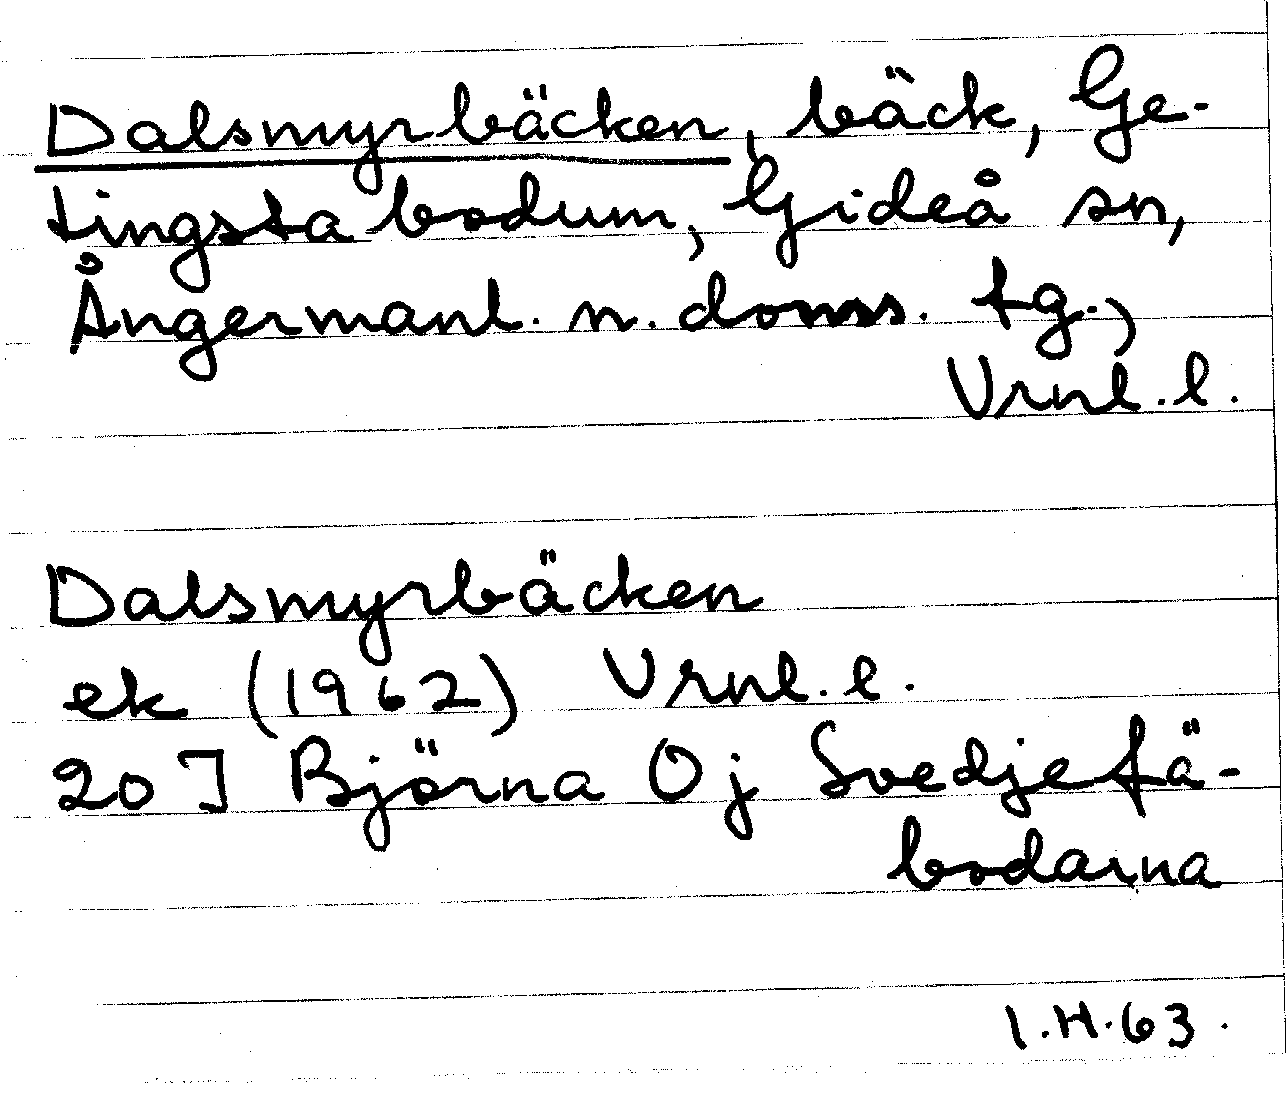 Dalsmyrbäcken, bäck, Ge-
tingsta bodum, Gideå sn,
Ångermanl. n. doms. tg.,
Vrnl. l.
Dalsmyrbäcken
ek (1962) Vrnl. l.
20 J Björna Oj Svedjefä-
bodarna
I.H.63.